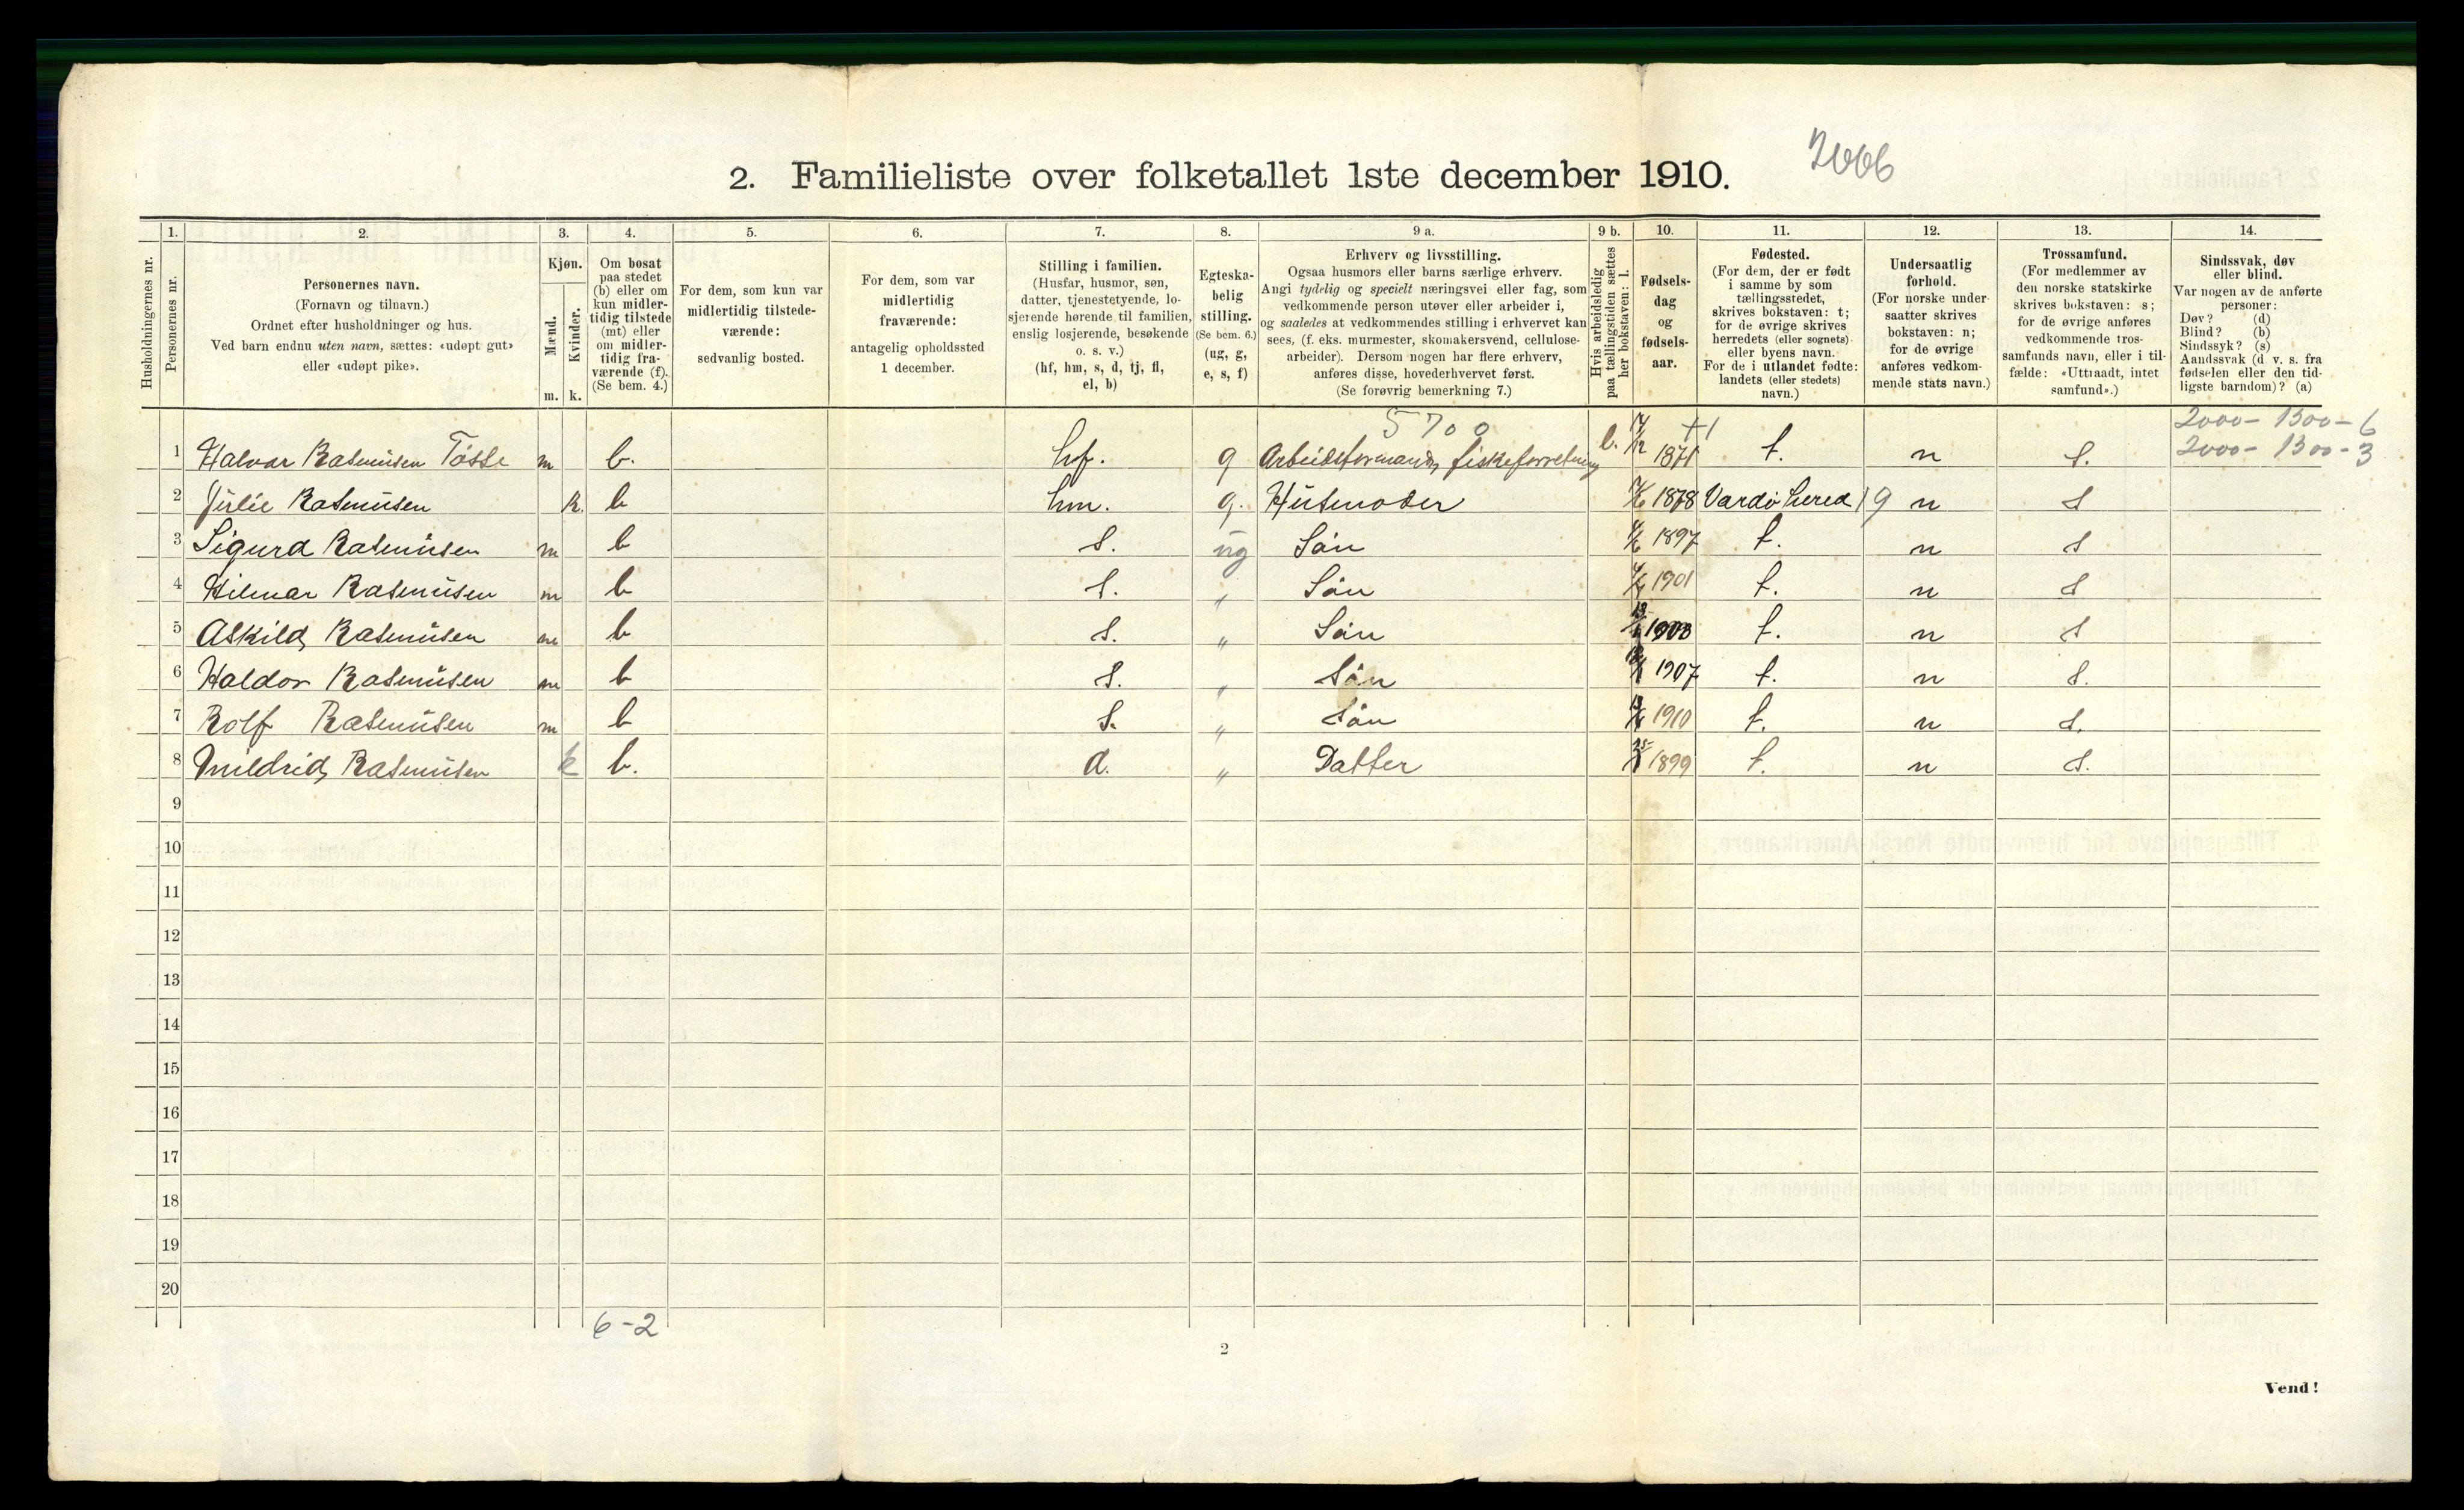 2. Familieliste over folketallet 1ste december 1910.
1. 2. 3. 4. 5. 6. 7. 8. 9 a. 9 b. 10. 11. 12. 13. 14.
Husholdningernes nr.
Personernes nr.
Personernes navn.
(Fornavn og tilnavn.)
Ordnet efter husholdninger og hus.
Ved barn endnu uten navn, sættes: «udøpt gut»
eller «udøpt pike».
Kjøn.
Mænd.
Kvinder.
m. k.
Om bosat
paa stedet
(b) eller om
kun midler-
tidig tilstede
(mt) eller
om midler-
tidig fra-
værende (f).
(Se bem. 4.)
For dem, som kun var
midlertidig tilstede-
værende:
sedvanlig bosted.
For dem, som var
midlertidig
fraværende:
antagelig opholdssted
1 december.
Stilling i familien.
(Husfar, husmor, søn,
datter, tjenestetyende, lo-
sjerende hørende til familien,
enslig losjerende, besøkende
o. s. v.)
(hf, hm, s, d, tj, fl,
el, b)
Egteska-
belig
stilling.
(Se bem. 6.)
(ug, g,
e, s, f)
Erhverv og livsstilling.
Ogsaa husmors eller barns særlige erhverv.
Angi tydelig og specielt næringsvei eller fag, som
vedkommende person utøver eller arbeider i,
og saaledes at vedkommendes stilling i erhvervet kan
sees, (f. eks. murmester, skomakersvend, cellulose-
arbeider). Dersom nogen har flere erhverv,
anføres disse, hovederhvervet først.
(Se forøvrig bemerkning 7.)
Hvis arbeidsledig
paa tællingstiden sættes
her bokstaven: l.
Fødsels-
dag
og
fødsels-
aar.
Fødested.
(For dem, der er født
i samme by som
tællingsstedet,
skrives bokstaven: t;
for de øvrige skrives
herredets (eller sognets)
eller byens navn.
For de i utlandet fødte:
landets (eller stedets)
navn.)
Undersaatlig
forhold.
(For norske under-
saatter skrives
bokstaven: n;
for de øvrige
anføres vedkom-
mende stats navn.)
Trossamfund.
(For medlemmer av
den norske statskirke
skrives bokstaven: s;
for de øvrige anføres
vedkommende tros-
samfunds navn, eller i til-
fælde: «Uttraadt, intet
samfund».)
Sindssvak, døv
eller blind.
Var nogen av de anførte
personer:
Døv? (d)
Blind? (b)
Sindssyk? (s)
Aandssvak (d. v. s. fra
fødselen eller den tid-
ligste barndom)? (a)
5700 2000 - 1300 - 6
1 Halvar Rasmusen Tösse m b. hf. g Arbeidsformand, fiskeforretning l. 1871 t. n s. 2000 - 1300 - 3
2 Julie Rasmusen k. b hm. g. Husmoder 1878 Vardö herred 19 n s
3 Sigurd Rasmusen m b s. ug Sön 1897 t. n s
4 Hilmar Rasmusen m b s. " Sön 1901 t. n s
5 Askild Rasmusen m b s. " Sön t. n s
6 Haldor Rasmusen m b s. " Sön 1907 t. n s.
7 Rolf Rasmusen m b s. " Sön 1910 t. n s.
8 Mildrid Rasmusen k b. d. " Datter 1899 t. n s.
9
10
11
12
13
14
15
16
17
18
19
20
6-2
2
Vend!